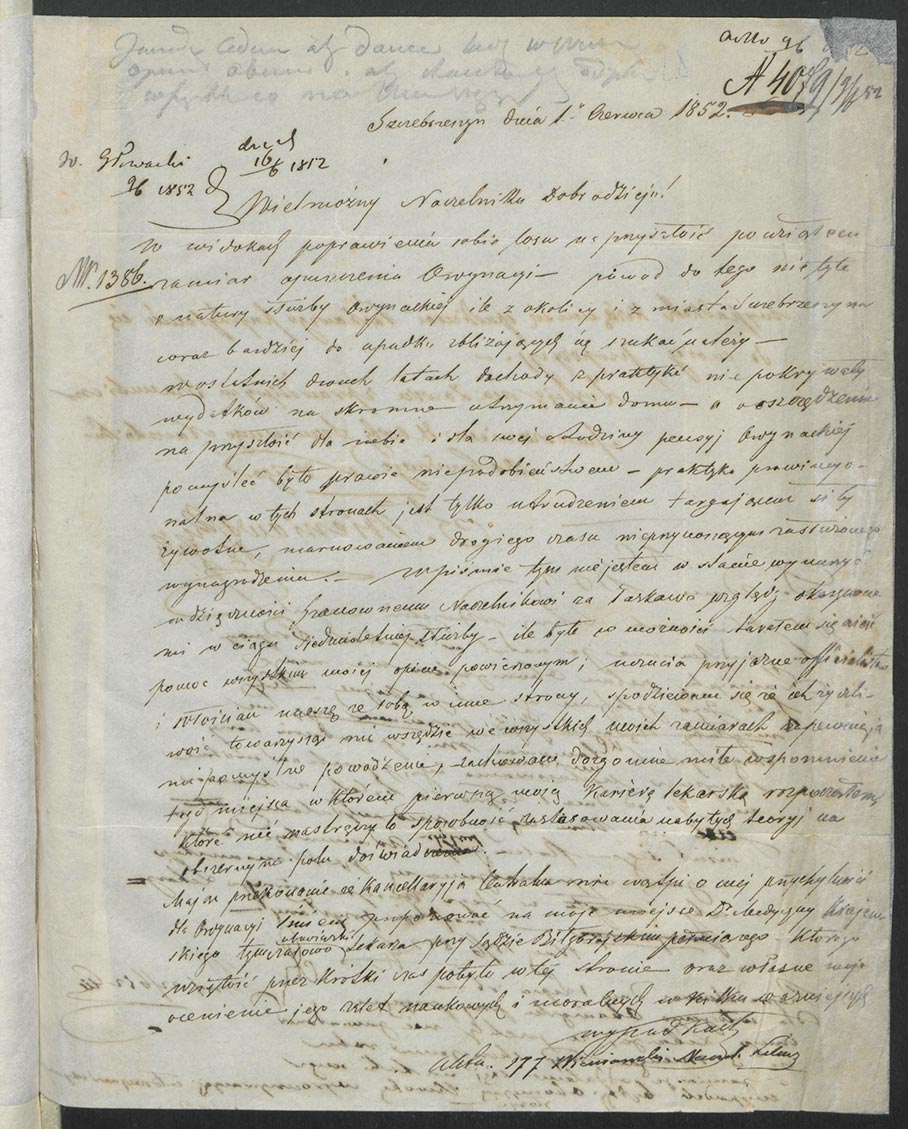 № 4079
Szczebrzeszyn dnia 1. Czerwca 1852.
16/6 1852
9/6 1852
Wielmożny Naczelniku Dobrodzieju!
w widokach poprawienia sobie losu na przyszłość powziąłem
Nr. 1386.
zamiar opuszczenia Ordynacji — powód do tego nie tyle
z natury służby Ordynackiej ile z okolicy i z miasta Szczebrzeszyna
coraz bardziej do upadku zbliżających się szukać należy —
w ostatnich dwóch latach dochody z praktyki nie pokrywały
wydatków na skromne utrzymanie domu — a o oszczędzeniu
na przyszłość dla siebie i dla swej Rodziny pensyi Ordynackiej
pomyśleć było prawie niepodobieństwem — praktyka prowincyo-
nalna w tych stronach jest tylko utrudzeniem targającem siły
żywotne, marnowaniem drogiego czasu nieprzynoszącym zasłużonego
wynagrodzenia. — W piśmie tym nie jestem w stanie wynurzyć
wdzięczności Szanownemu Naczelnikowi za łaskawe względy okazywane
mi w ciągu siedmioletniej służby — ile było w możności starałem się nieść
pomoc wszystkim mojej opiece powierzonym; uczucia przyjazne officialistów
i włościan unoszę ze sobą w inne strony, spodziewam się że ich życzli-
wość towarzysząc mi wszędzie we wszystkich moich zamiarach zapewni
mi pomyślne powodzenie, zachowam dozgonnie miłe wspomnienie
tych miejsc w którem pierwszą moją Karierę lekarską rozpocząłem,
które mi nastręczyło sposobność zastosowania nabytych teoryj na
obszerne pole doświadczenia.
Mając przekonanie że Kancellaryja Centralna nie wątpi o mej przychylności
dla Ordynacyi śmiem proponować na moje miejsce Dr. Medycyny
skiego tymczasowo Lekarza przy Sądzie Biłgorajskim którego
wziętość przez krótki czas pobytu w tej stronie oraz własne moje
ocenienie jego zalet naukowych i moralnych w kilku ważniejszych
wypadkach
Akta. 177